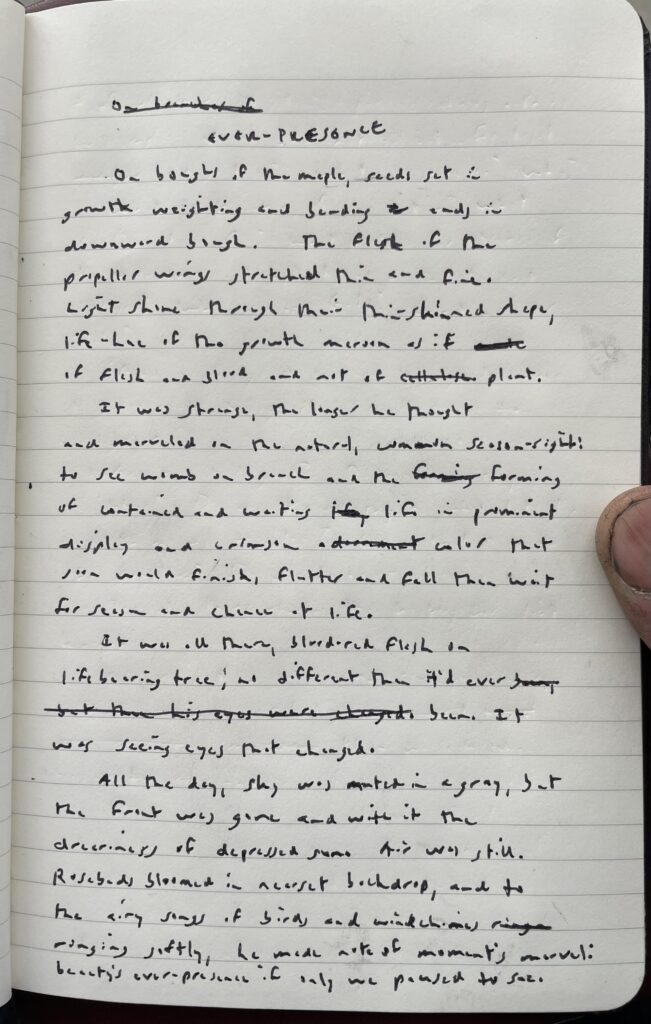 On branches of
EVER-PRESENCE
On boughs of the maple, seeds set in
growth weighting and bending ends in
downward bough. The flesh of the
propeller wings stretched thin and fine.
Light shone through their thin-skinned shape,
life-hue of the growth maroon as if
of flesh and blood and not of cellulose plant.
It was strange, the longer he thought
and marveled on the natural, common season-sight:
to see womb on branch and the forming forming
of contained and waiting life, life in prominent
display and crimson adornment color that
soon would finish, flutter and fall then wait
for season and chance at life.
It was all there, bloodred flesh on
lifebearing tree; no different than it'd ever been,
but then his eyes were changed. been. It
was seeing eyes that changed.
All the day, sky was muted in a gray, but
the front was gone and with it the
dreariness of depressed sun. Air was still.
Rosebuds bloomed in nearset backdrop, and to
the airy songs of birds and windchimes ringing
ringing softly, he made note of moment's marvel:
beauty's ever-presence if only we paused to see.